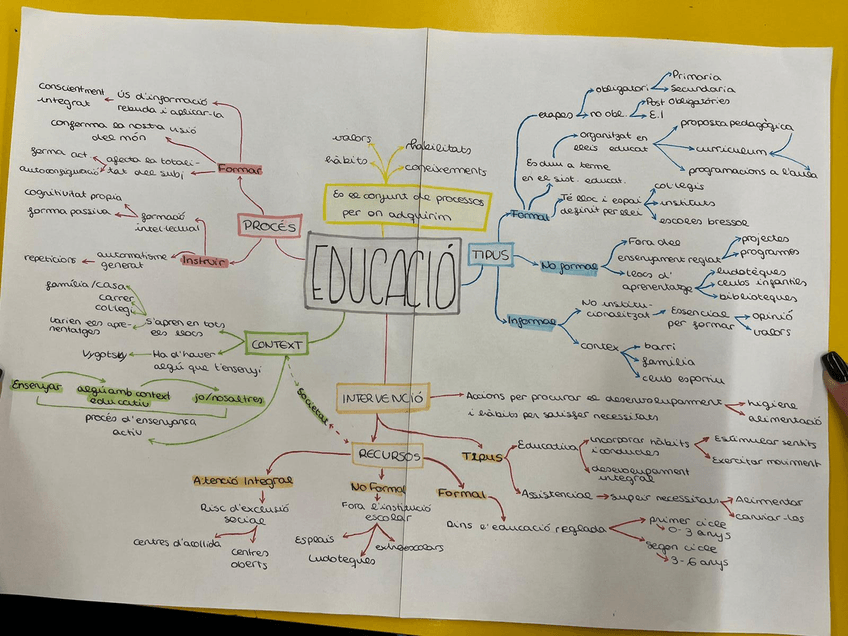 conscientment
integrat
ús d'informació
rebuda i aplicar-la
conforma la nostra visió
del món
forma act
autoconsiguació
afecta la totali-
tat del subj
Formar
cognitivitat propia
forma passiva
formació
intel·lectual
PROCÉS
repeticions
automatisme
generat
Instruir
valors
hàbits
habilitats
coneixements
Es el conjunt de processos
per on adquirim
EDUCACIÓ
TIPUS
Formal
etapes
obligatori
Primaria
Secundaria
no obl.
Post obligatóries
E.I
Es duu a terme
en el sist. educat.
organitzat en
nivells educat
proposta pedagògica
curriculum
programacions a l'aula
Té lloc i espai
definit per llei
col·legis
instituts
escoles bressol
No formal
Fora del
ensenyament reglat
projectes
programes
llocs d'
aprenentatge
ludotèques
clubs infantils
biblioteques
Informal
No institu-
cionalitzat
Essencial
per formar
opinió
valors
contex
barri
família
club esportiu
família/casa
carrer
col·legi
varien els apre-
nentatges
s'apren en tots
els llocs
CONTEXT
Vygotsky
Ha d'haver
algú que t'ensenyi
Ensenyar
algú amb context
educatiu
jo/nosaltres
procés d'ensenyança
actiu
Societat
INTERVENCIÓ
Accions per procurar el desenvolupament
i hàbits per satisfer necessitats
higiene
alimentació
TIPUS
Educativa
incorporar hàbits
i conductes
Estimular sentits
Exercitar moviment
desenvolupament
integral
Assistencial
suplir necessitats
Alimentar
canviar-los
RECURSOS
Atenció Integral
Risc d'exclusió
social
centres d'acollida
centres
oberts
No Formal
Fora l'institució
escolar
Esplais
Ludoteques
extraescolars
Formal
Dins l'educació reglada
primer cicle
0-3 anys
segon cicle
3-6 anys